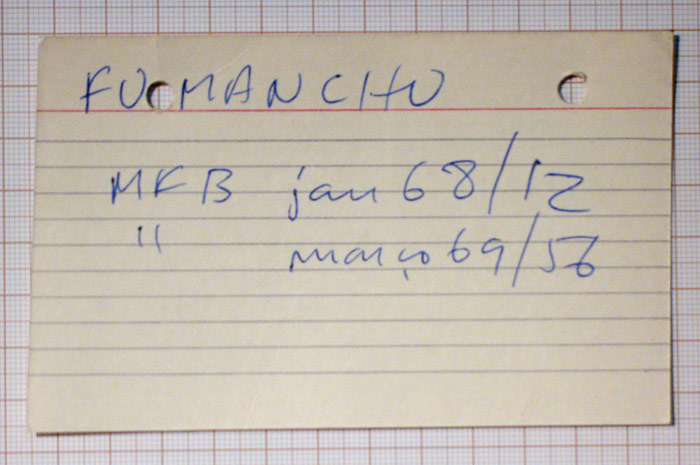 FU MANCHU
MFB jan 68/12
" março 69/56